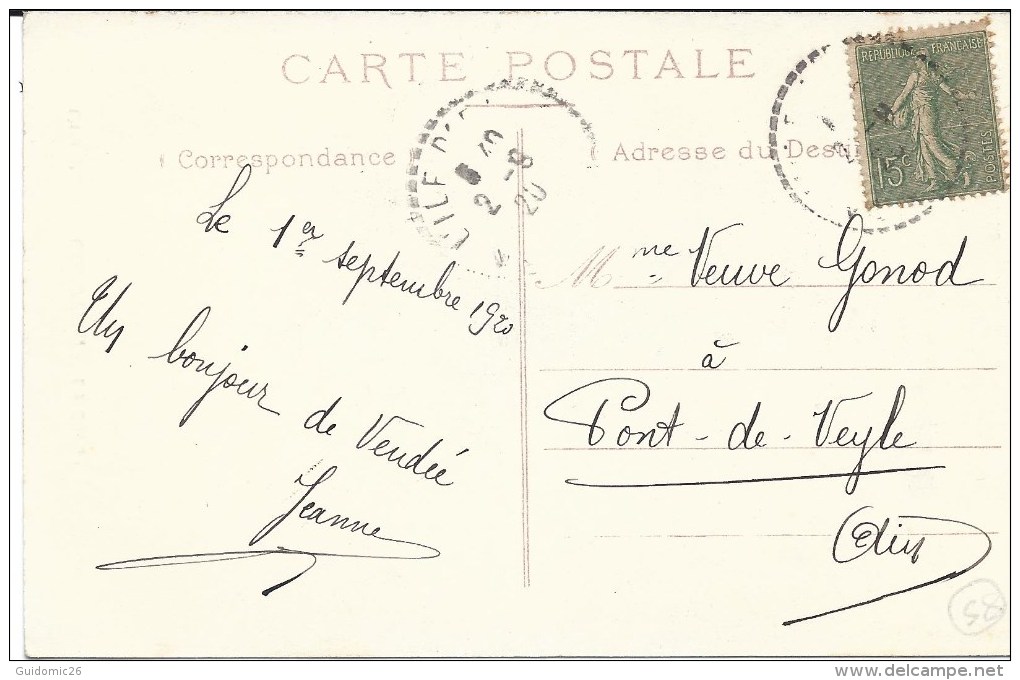 CARTE POSTALE
Correspondance
Adresse du Desti
RÉPUBLIQUE FRANÇAISE
15c
POSTES
L'ILE D'
40
2 -8
20
Le 1er septembre 1920
Un bonjour de Vendée
Jeanne
Mme Veuve Gonod
à
Pont-de-Veyle
Ain
58
Guidomic26
www.delcampe.net